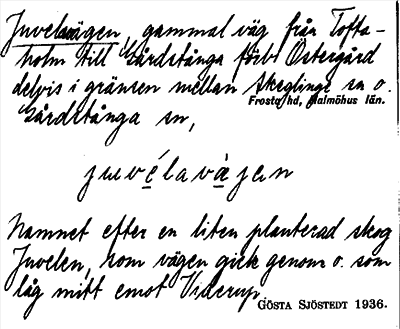 Juvelavägen, gammal väg från Tofta-
holm till Gårdstånga förbi Östergård
delvis i gränsen mellan Skeglinge sn o.
Frosta hd, Malmöhus län.
Gårdstånga sn,
juvélavàjen
Namnet efter en liten planterad skog
Juvelen, som vägen gick genom o. som
låg mitt emot Viderup.
GÖSTA SJÖSTEDT 1936.